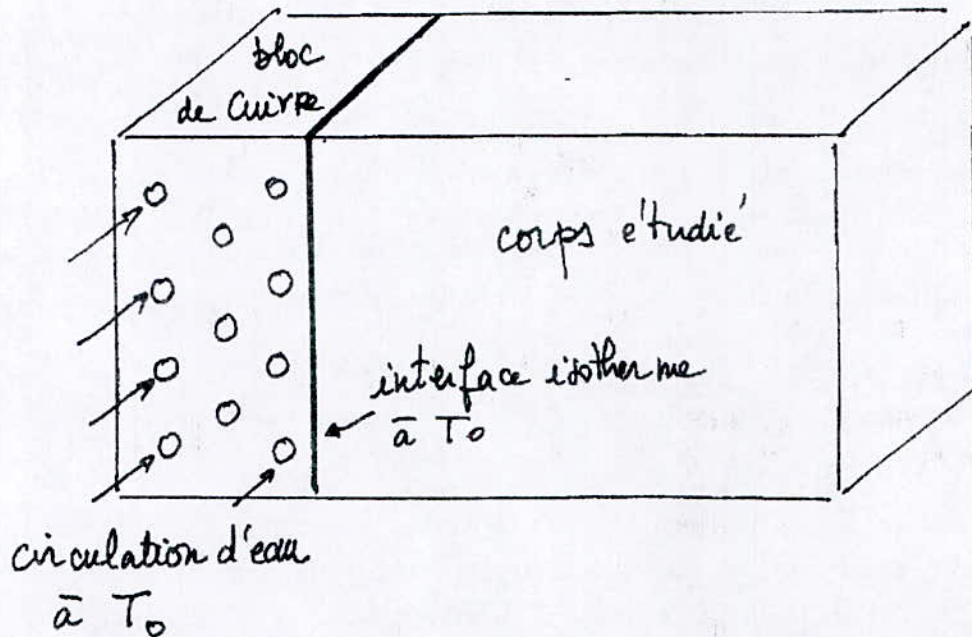 bloc
de Cuivre
corps étudié
interface isotherme
à T₀
circulation d'eau
à T₀